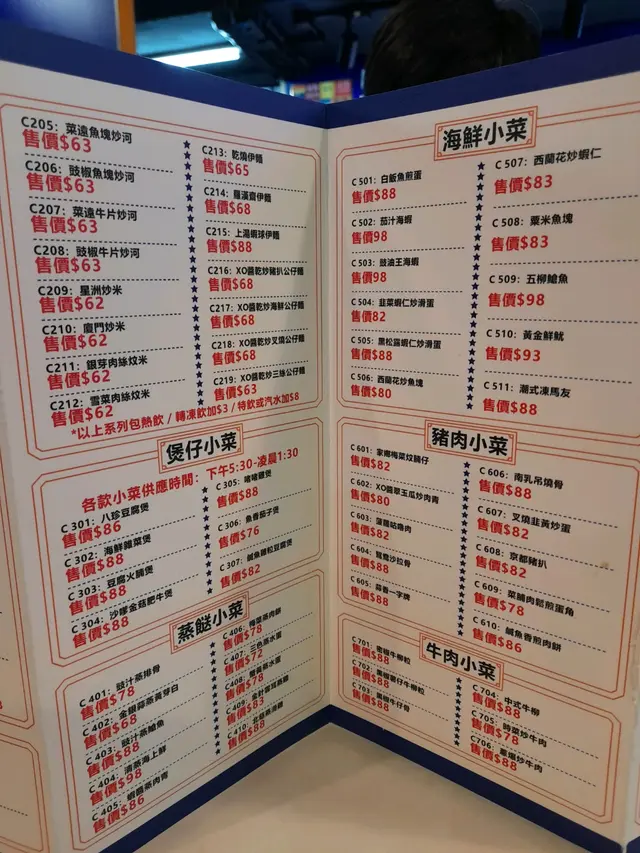 C205: 菜遠魚塊炒河
售價$63
C206: 豉椒魚塊炒河
售價$63
C207: 菜遠牛片炒河
售價$63
C208: 豉椒牛片炒河
售價$63
C209: 星洲炒米
售價$62
C210: 廈門炒米
售價$62
C211: 銀芽肉絲炆米
售價$62
C212: 雪菜肉絲炆米
售價$62
C213: 乾燒伊麵
售價$65
C214: 羅漢齋伊麵
售價$68
C215: 上湯蝦球伊麵
售價$88
C216: XO醬乾炒豬扒公仔麵
售價$68
C217: XO醬乾炒海鮮公仔麵
售價$68
C218: XO醬乾炒叉燒公仔麵
售價$68
C219: XO醬乾炒三絲公仔麵
售價$63
*以上系列包熱飲 / 轉凍飲加$3 / 特飲或汽水加$8
煲仔小菜
各款小菜供應時間: 下午5:30-凌晨1:30
C 301: 八珍豆腐煲
售價$86
C 302: 海鮮雜菜煲
售價$88
C 303: 豆腐火腩煲
售價$88
C 304: 沙嗲金菇肥牛煲
售價$88
C 305: 啫啫雞煲
售價$88
C 306: 魚香茄子煲
售價$76
C 307: 鹹魚雞粒豆腐煲
售價$82
蒸餸小菜
C 401: 豉汁蒸排骨
售價$78
C 402: 金銀蒜蒸黃芽白
售價$68
C 403: 豉汁蒸鯰魚
售價$88
C 404: 清蒸海上鮮
售價$98
C 405: 蝦醬蒸肉青
售價$86
C 406: 梅菜蒸肉餅
售價$78
C 407: 三色蒸水蛋
售價$72
C 408: 蒸水蛋
售價$78
C 409:
售價$83
C 410:
售價$88
海鮮小菜
C 501: 白飯魚煎蛋
售價$88
C 502: 茄汁海蝦
售價98
C 503: 豉油王海蝦
售價98
C 504: 韮菜蝦仁炒滑蛋
售價82
C 505: 黑松露蝦仁炒滑蛋
售價$88
C 506: 西蘭花炒魚塊
售價$80
C 507: 西蘭花炒蝦仁
售價$83
C 508: 粟米魚塊
售價$83
C 509: 五柳鯰魚
售價$98
C 510: 黃金鮮魷
售價$93
C 511: 潮式凍馬友
售價$88
豬肉小菜
C 601: 家鄉梅菜炆腩仔
售價$82
C 602: XO醬翠玉瓜炒肉青
售價$80
C 603: 菠蘿咕嚕肉
售價$82
C 604: 鴛鴦沙拉骨
售價$88
C 605: 蒜香一字骨
售價$88
C 606: 南乳吊燒骨
售價$88
C 607: 叉燒韮黃炒蛋
售價$82
C 608: 京都豬扒
售價$82
C 609: 菜脯肉鬆煎蛋角
售價$78
C 610: 鹹魚香煎肉餅
售價$86
牛肉小菜
C 701: 牛柳粒
售價$88
C 702: 薯仔牛柳粒
售價$88
C 703: 牛仔骨
售價$88
C 704: 中式牛柳
售價$88
C 705: 時菜炒牛肉
售價$78
C 706: 薑蔥炒牛肉
售價$88